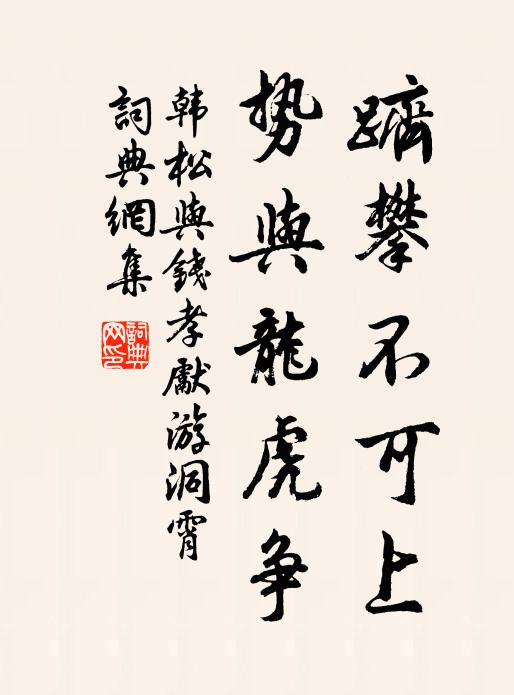 躋攀不可上
势與龍虎争
韩松與錢孝獻游洞霄
詞典網集
詞典网印